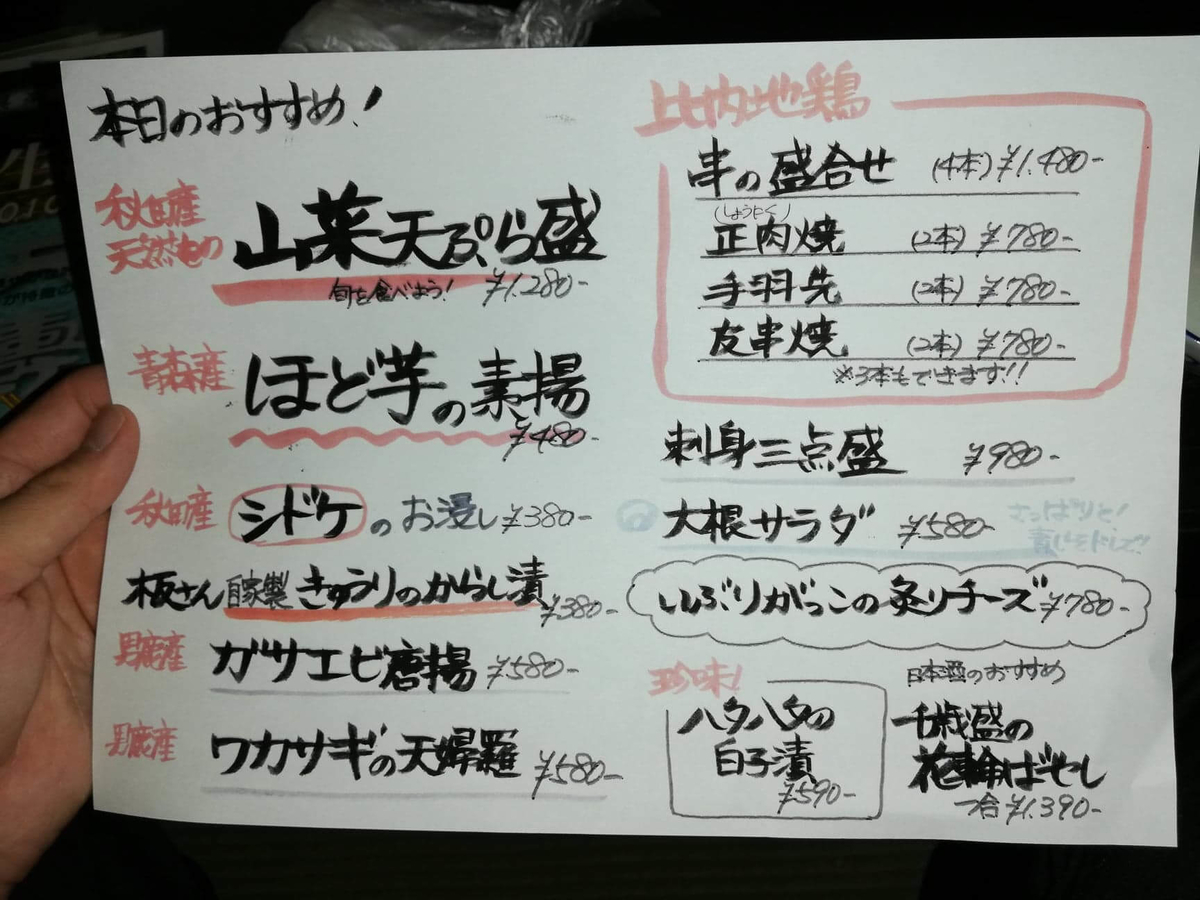 本日のおすすめ!
秋田産
天然もの
山菜天ぷら盛
旬を食べよう! ¥1.280-
青森産
ほど芋の素揚
¥480-
秋田産 シドケのお浸し ¥380-
板さん自家製きゅうりのからし漬
¥380-
男鹿産 ガサエビ唐揚 ¥580-
男鹿産 ワカサギの天婦羅 ¥580-
比内地鶏
串の盛合せ (4本) ¥1.480-
(しょうにく)
正肉焼 (2本) ¥780-
手羽先 (2本) ¥780-
友串焼 (2本) ¥780-
※3本もできます!!
刺身三点盛 ¥980-
大根サラダ ¥580-
さっぱりと!
青じそドレで!!
いぶりがっこの炙りチーズ ¥780-
珍味!
ハタハタの
白子漬
¥590-
日本酒のおすすめ
千歳盛の
花輪ばやし
一合 ¥1.390-